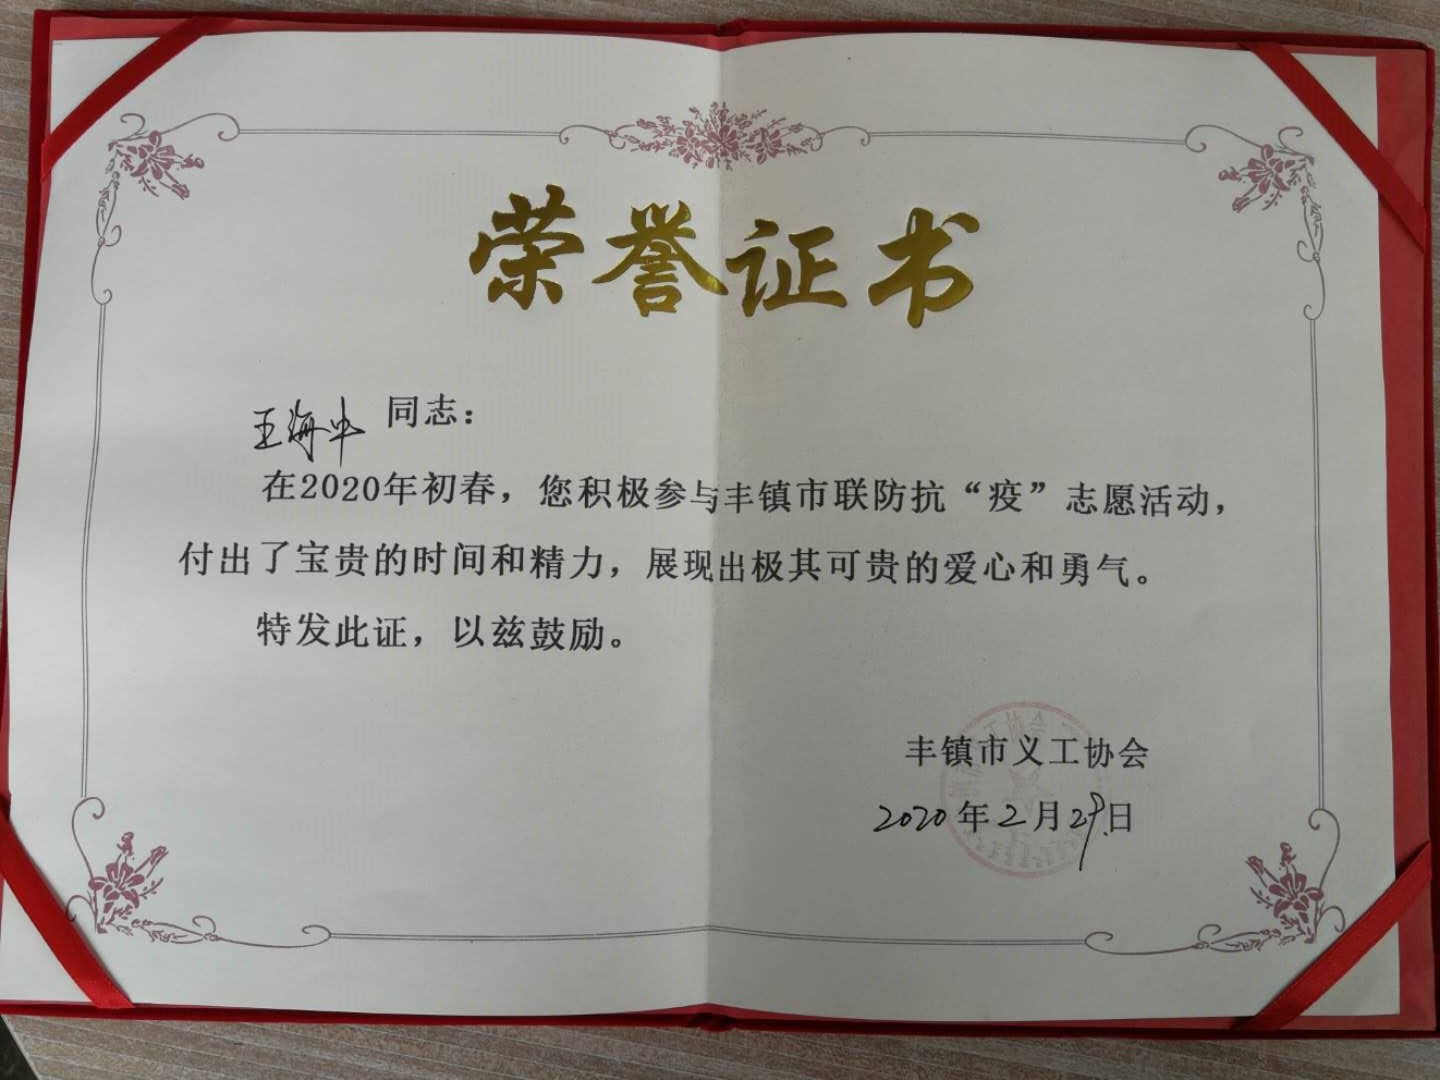 荣誉证书
王海中 同志：
在2020年初春，您积极参与丰镇市联防抗“疫”志愿活动，
付出了宝贵的时间和精力，展现出极其可贵的爱心和勇气。
特发此证，以兹鼓励。
丰镇市义工协会
2020年2月29日